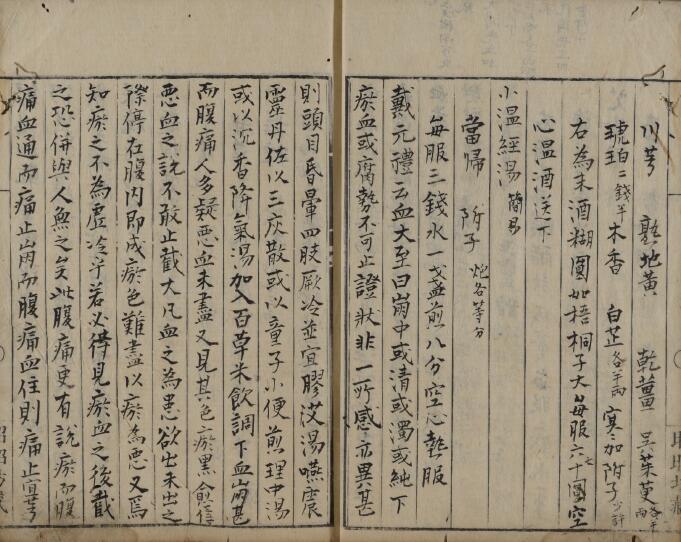 川芎 熟地黃 乾薑 吳茱萸各半兩
琥珀二錢半 木香 白芷各半兩 寒加附子少許
右為末酒糊圓如梧桐子大每服六七十圓空
心溫酒送下
小溫經湯 簡易
當歸 附子炮各等分
每服三錢水一盞煎八分空心熱服
戴元禮云血大至曰崩中或清或濁或純下
瘀血或腐勢不可止證狀非一所感亦異甚
則頭目昏暈四肢厥冷並宜膠艾湯嚥震
靈丹佐以三灰散或以童子小便煎理中湯
或以沉香降氣湯加入百草米飲調下血崩甚
而腹痛人多疑惡血未盡又見其色瘀黑愈信
惡血之說不敢止截大凡血之為患欲出未出之
際停在腹內即成瘀色難盡以瘀為惡又焉
知瘀之不為虛冷乎若必得見瘀血之後截
之恐併與人無之矣此腹痛更有說瘀而腹
痛血通而痛止崩而腹痛血住則痛止宜芎